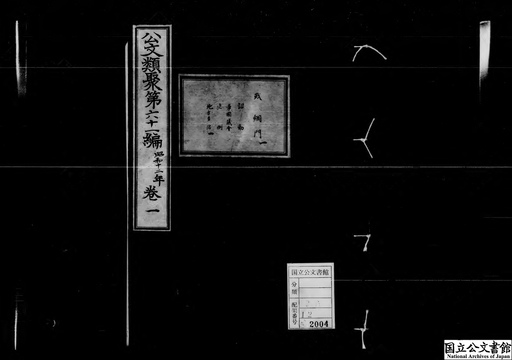 公文類聚第六十一編 昭和十二年 卷一
政綱門 一
詔勅
帝國議會
法例
地方自治一
国立公文書館
分類
配架番号
12
2004
国立公文書館
National Archives of Japan